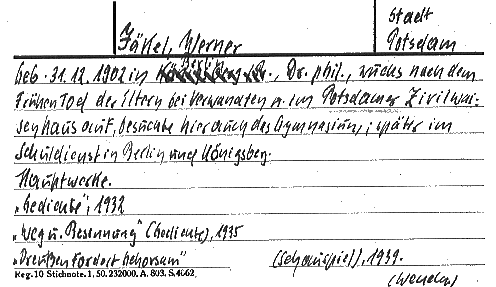 Stadt
Jäckel, Werner Potsdam
Berlin
geb. 31.12.1902 in Königsberg Pr., Dr. phil., wuchs nach dem
frühen Tod der Eltern bei Verwandten u. im Potsdamer Zivilwai-
senhaus auf, besuchte hier auch das Gymnasium; später im
Schuldienst in Berlin und Königsberg.
Hauptwerke.
„Gedichte", 1932
„Weg u. Besinnung" (Gedichte), 1935
„Preußen fordert Gehorsam" (Schauspiel), 1939.
Reg. 10 Stichnote. 1, 50. 232000. A. 803. S. 4662